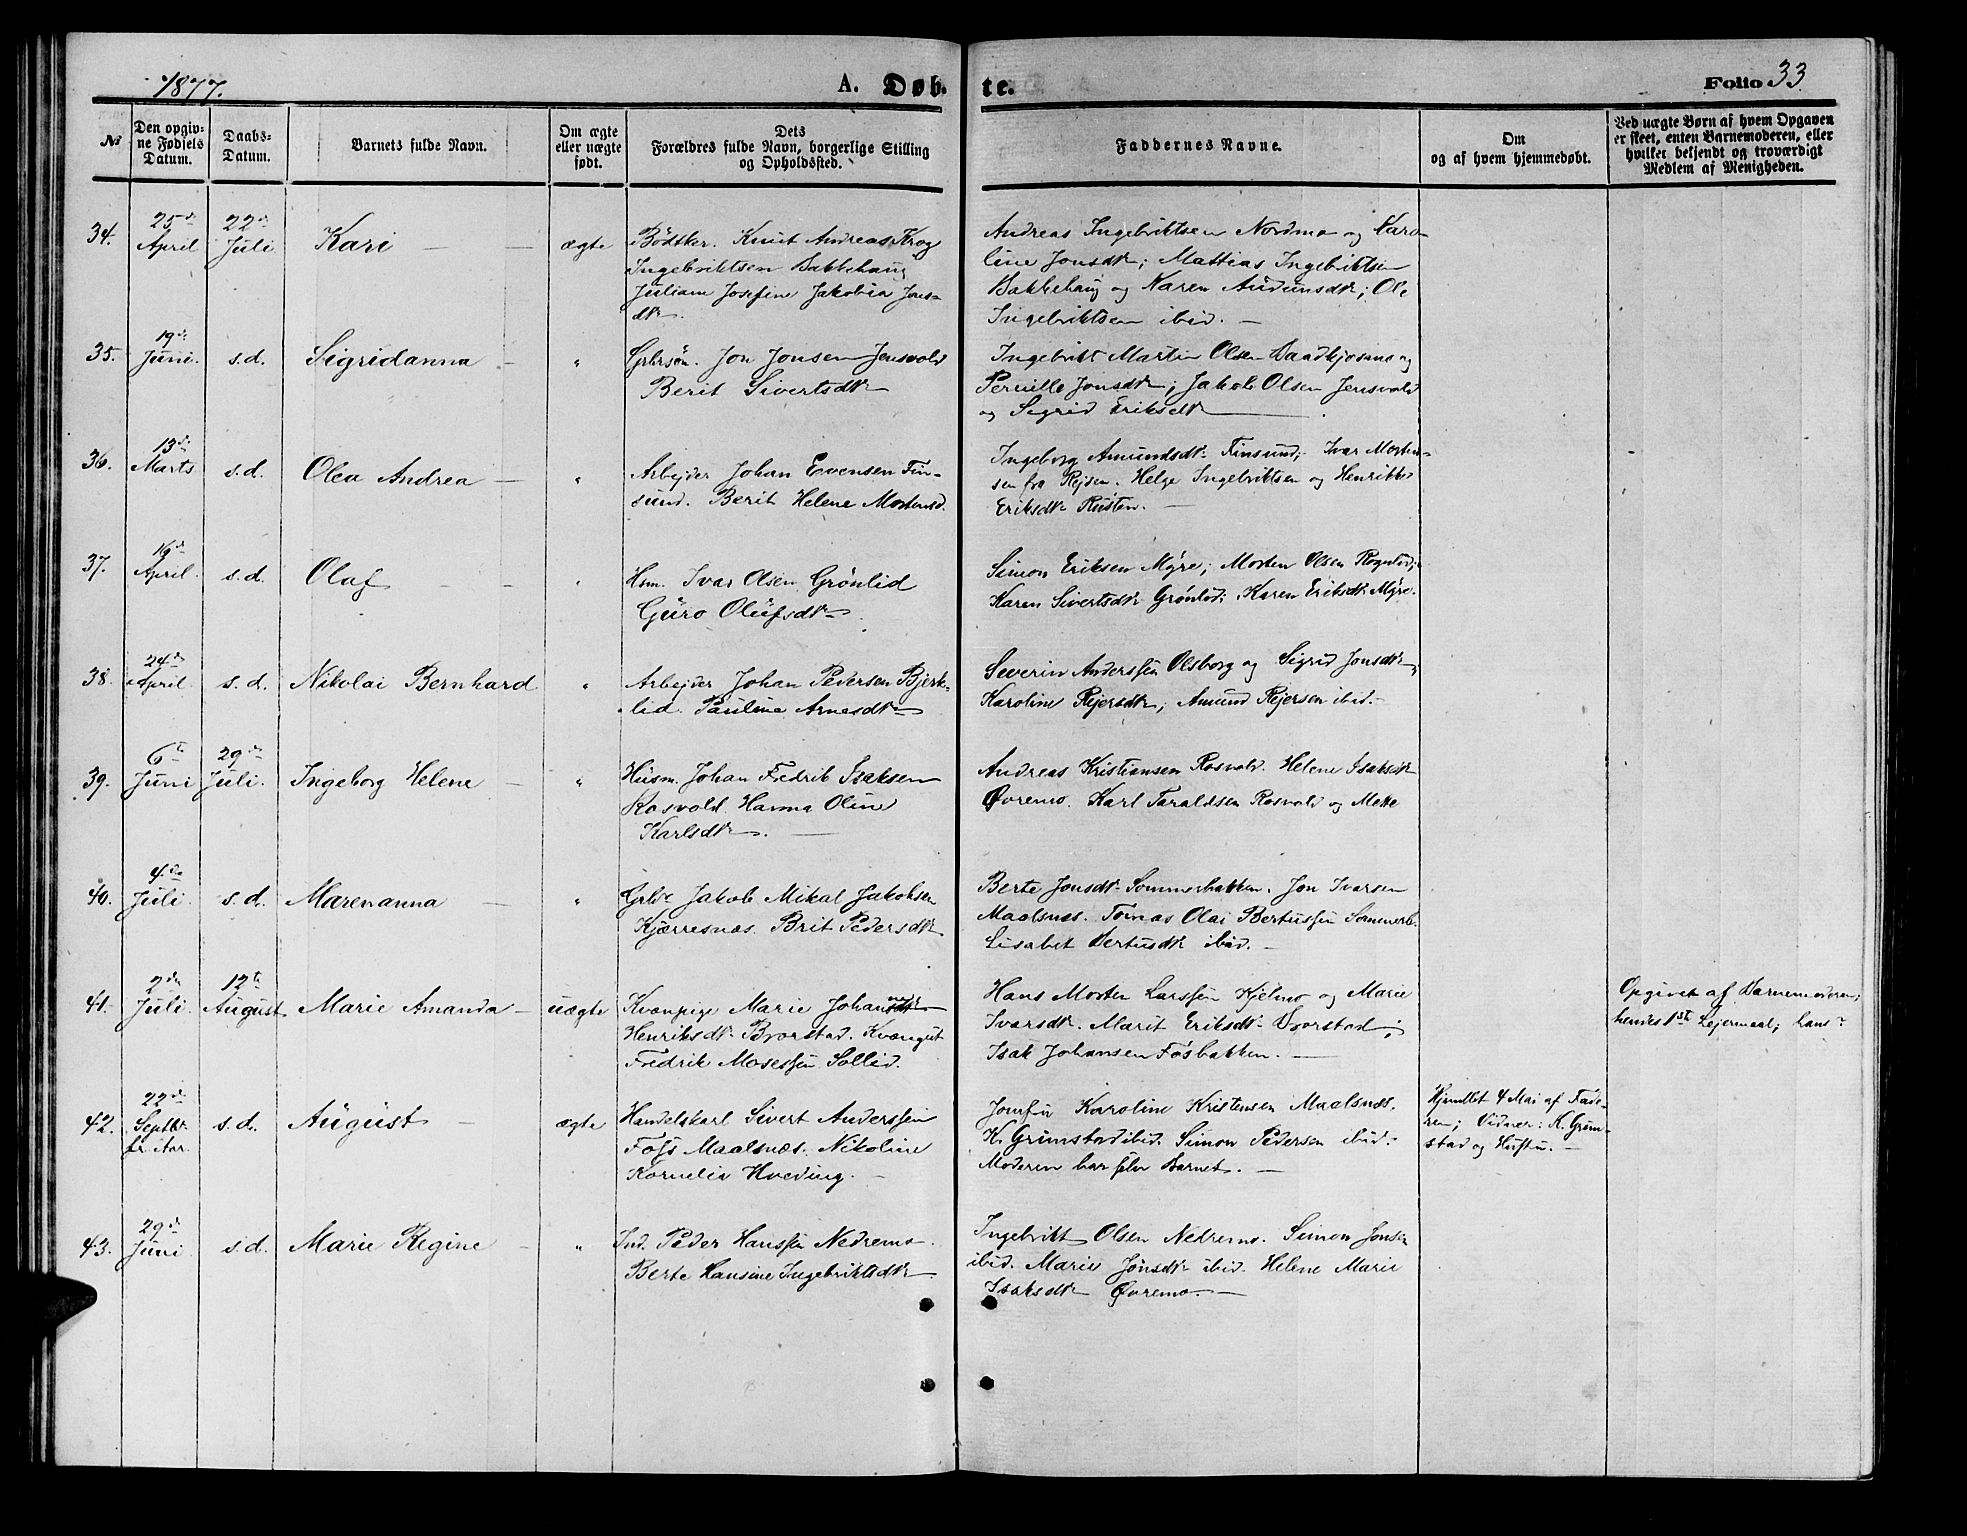 1877.
A. Døb-
te.
Folio 33
№
Den opgiv-
ne Fødsels
Datum.
Daabs-
Datum.
Barnets fulde Navn.
Om ægte
eller uægte
født.
Dets
Forældres fulde Navn, borgerlige Stilling
og Opholdssted.
Faddernes Navne.
Om
og af hvem hjemmedøbt.
Ved uægte Børn af hvem Opgaven
er skeet, enten Barnemoderen, eller
hvilket bekjendt og troværdigt
Medlem af Menigheden.
34.
25de
April
22de
Juli
Kari
ægte
Bödtker. Knut Andreas Krog
Ingebriktsen Bakkehaug
Juliane Josefine Jakobia Jons-
dtr.
Andreas Ingebriktsen Nordmo og Karo-
line Jonsdtr; Mattias Ingebriktsen
Bakkehaug og Karen Audunsdtr; Ole
Ingebriktsen ibid. –
35.
19de
Juni.
s.d.
Sigridanna –
"
Jon Jonsen Jensvold
Berit Sivertsdtr
Ingebrikt Martin Olsen og
Pernille Jonsdtr; Jakob Olsen Jensvold
og Sigrid Eriksdtr
36.
13de
Marts
s.d.
Olea Andrea –
"
Arbejder Johan Evensen Fin-
sund. Berit Helene Mortensd.
Ingeborg Amundsdtr Finsund; Ivar Morten-
sen fra Rejsen. Helge Ingebriktsen og Henrikke
Eriksdtr Rusten. –
37.
16de
April.
s.d.
Olaf – –
"
Hsm. Ivar Olsen Grönlid
Guro Olufsdtr
Simon Eriksen Myre; Morten Olsen
Karen Sivertsdtr Grönlid; Karen Eriksdtr Myre.
38.
24de
April
s.d.
Nikolai Bernhard
"
Arbejder Johan Pedersen Bjerk-
lid. Pauline Arnesdtr
Severin Anderssen Olsborg og Sigrid Jonsdtr;
Karoline Rejersdtr; Amund Rejersen ibid. –
39.
6te
Juni
29de
Juli.
Ingeborg Helene –
"
Husm. Johan Fredrik Isaksen
Rosvold Hanna Oline
Karlsdtr. –
Andreas Kristiansen Rosvold. Helene Isaksdtr
Øvremo. Karl Taraldsen Rosvold og Mette
40.
4de
Juli.
s.d.
Marenanna –
"
Jakob Mikal Jakobsen
Kjærresnæs. Brit Pedersdtr
Berte Jonsdtr Sommerbakken. Jon Ivarsen
Maalsnes. Tomas Olai Bertussen Sommerb.
Lisabet Bertusdtr ibid. –
41.
2den
Juli.
12te
August
Marie Amanda –
uægte
Kvænpige Marie Johanne
Henriksdtr Bjorstad. Kvængut
Fredrik Mosessen Sollid.
Hans Morten Larssen Kjelmo og Marie
Ivarsdtr. Marit Eriksdtr Bjorstad;
Isak Johansen Fosbakken. –
Opgivet af Barnemoderen;
hendes 1ste Lejermaal; hans?
42.
22de
Septbr
f. Aar.
s.d.
August –
ægte
Handelskarl Sivert Anderssen
Foss Maalsnæs. Nikoline
Kornelia Hveding. –
Jomfru Karoline Kristensen Maalsnes.
K. Grimstad ibid. Simon Pedersen ibid.
Moderen bar selv Barnet. –
Hjemdbt 4 Mai af Fade-
ren; Vidner: K. Grim-
stad og Hustru. –
43.
29de
Juni
s.d.
Marie Regine –
"
Ind. Peder Hanssen Nedremo.
Berte Hansine Ingebriktsdtr.
Ingebrikt Olsen Nedremo. Simon Jonsen
ibid. Marie Jonsdtr ibid. Helene Marie
Isaksdtr Øvremo. –